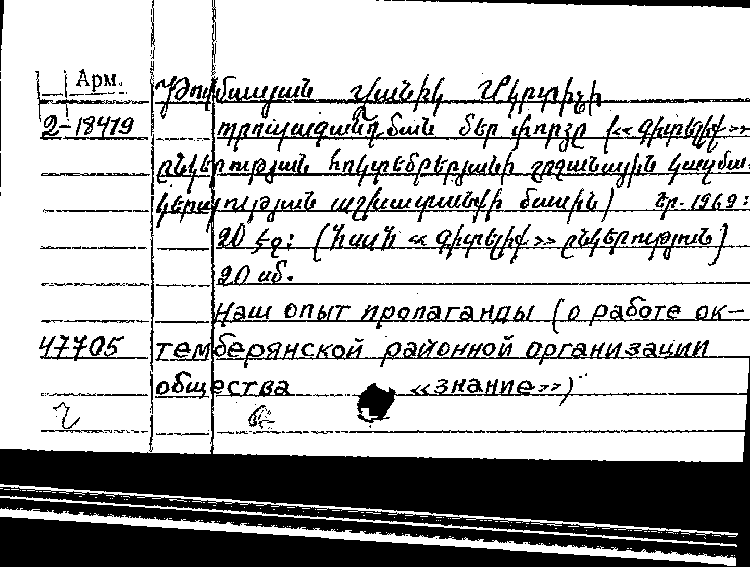 Арм.
Թովմասյան Վանիկ Մկրտիչի
2-18419 պրոպագանդման մեր փորձը («Գիտելիք»
ընկերության հոկտեմբերյանի շրջանային կազմա-
կերպության աշխատանքի մասին) Եր. 1969:
20 էջ: (ՀասհՀ «Գիտելիք» ընկերություն)
20 սմ.
Наш опыт пропаганды (о работе ок-
47705 темберянской районной организации
общества «знание»)